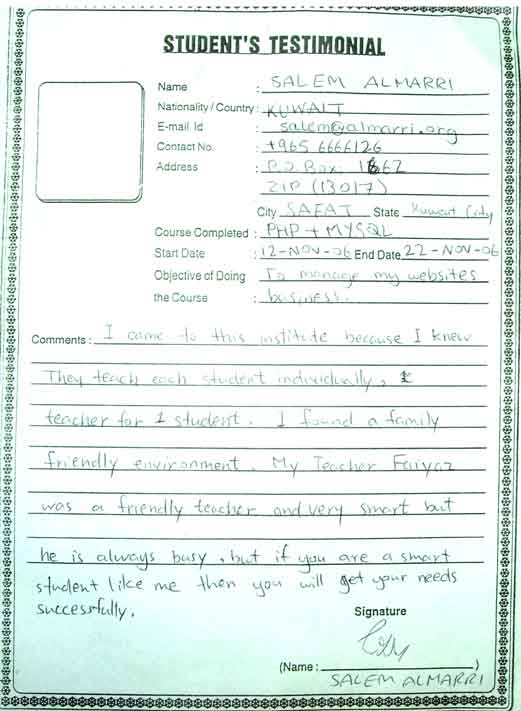 STUDENT'S TESTIMONIAL
Name : SALEM ALMARRI
Nationality / Country : KUWAIT
E-mail Id : salem@almarri.org
Contact No. : +965 6666126
Address : P.O Box: 1662
ZIP (13017)
City SAFAT State Kuwait City
Course Completed : PHP + MYSQL
Start Date : 12-NOV-06 End Date 22-NOV-06
Objective of Doing To manage my websites
the Course : business.
Comments : I came to this institute because I knew
They teach each student individually, 1
teacher for 1 student. I found a family
friendly environment. My Teacher Faiyaz
was a friendly teacher and very smart but
he is always busy, but if you are a smart
student like me then you will get your needs
successfully.
Signature
(Name : )
SALEM ALMARRI